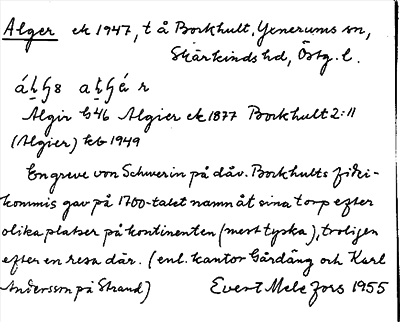 Alger ek 1947, t å Borkhult, Yxnerums sn,
Skärkinds hd, Östg. l.
Algir G46 Algier ek 1877 Borkhult 2:11
(Algier) kb 1949
En greve von Schwerin på dåv. Borkhults fidei-
kommis gav på 1700-talet namn åt sina torp efter
olika platser på kontinenten (mest tyska), troligen
efter en resa där. (enl. kantor Gärdäng och Karl
Andersson på Strand) Evert Melefors 1955